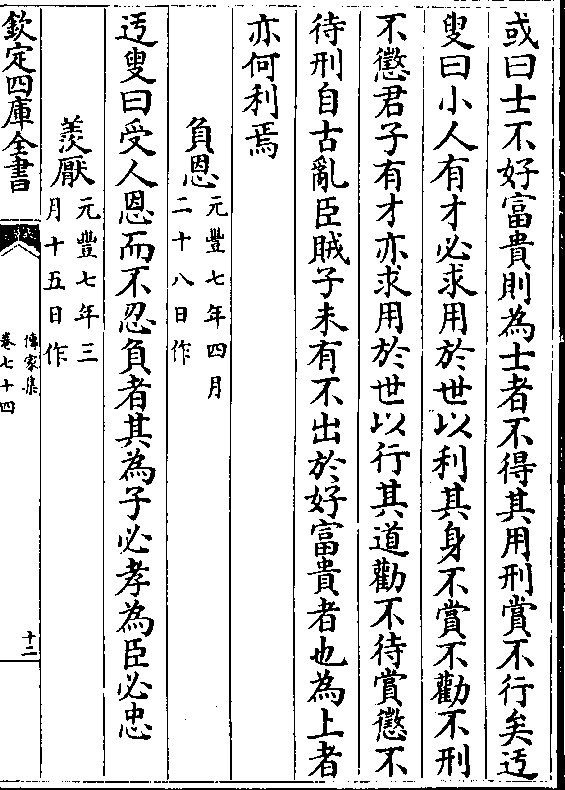 或曰士不好富貴則為士者不得其用刑賞不行矣迃
叟曰小人有才必求用於世以利其身不賞不勸不刑
不懲君子有才亦求用於世以行其道勸不待賞懲不
待刑自古亂臣賊子未有不出於好富貴者也為上者
亦何利焉
負恩元豐七年四月
二十八日作
迃叟曰受人恩而不忍負者其為子必孝為臣必忠
羨厭元豐七年三
月十五日作
欽定四庫全書
傳家集
卷七十四
十二